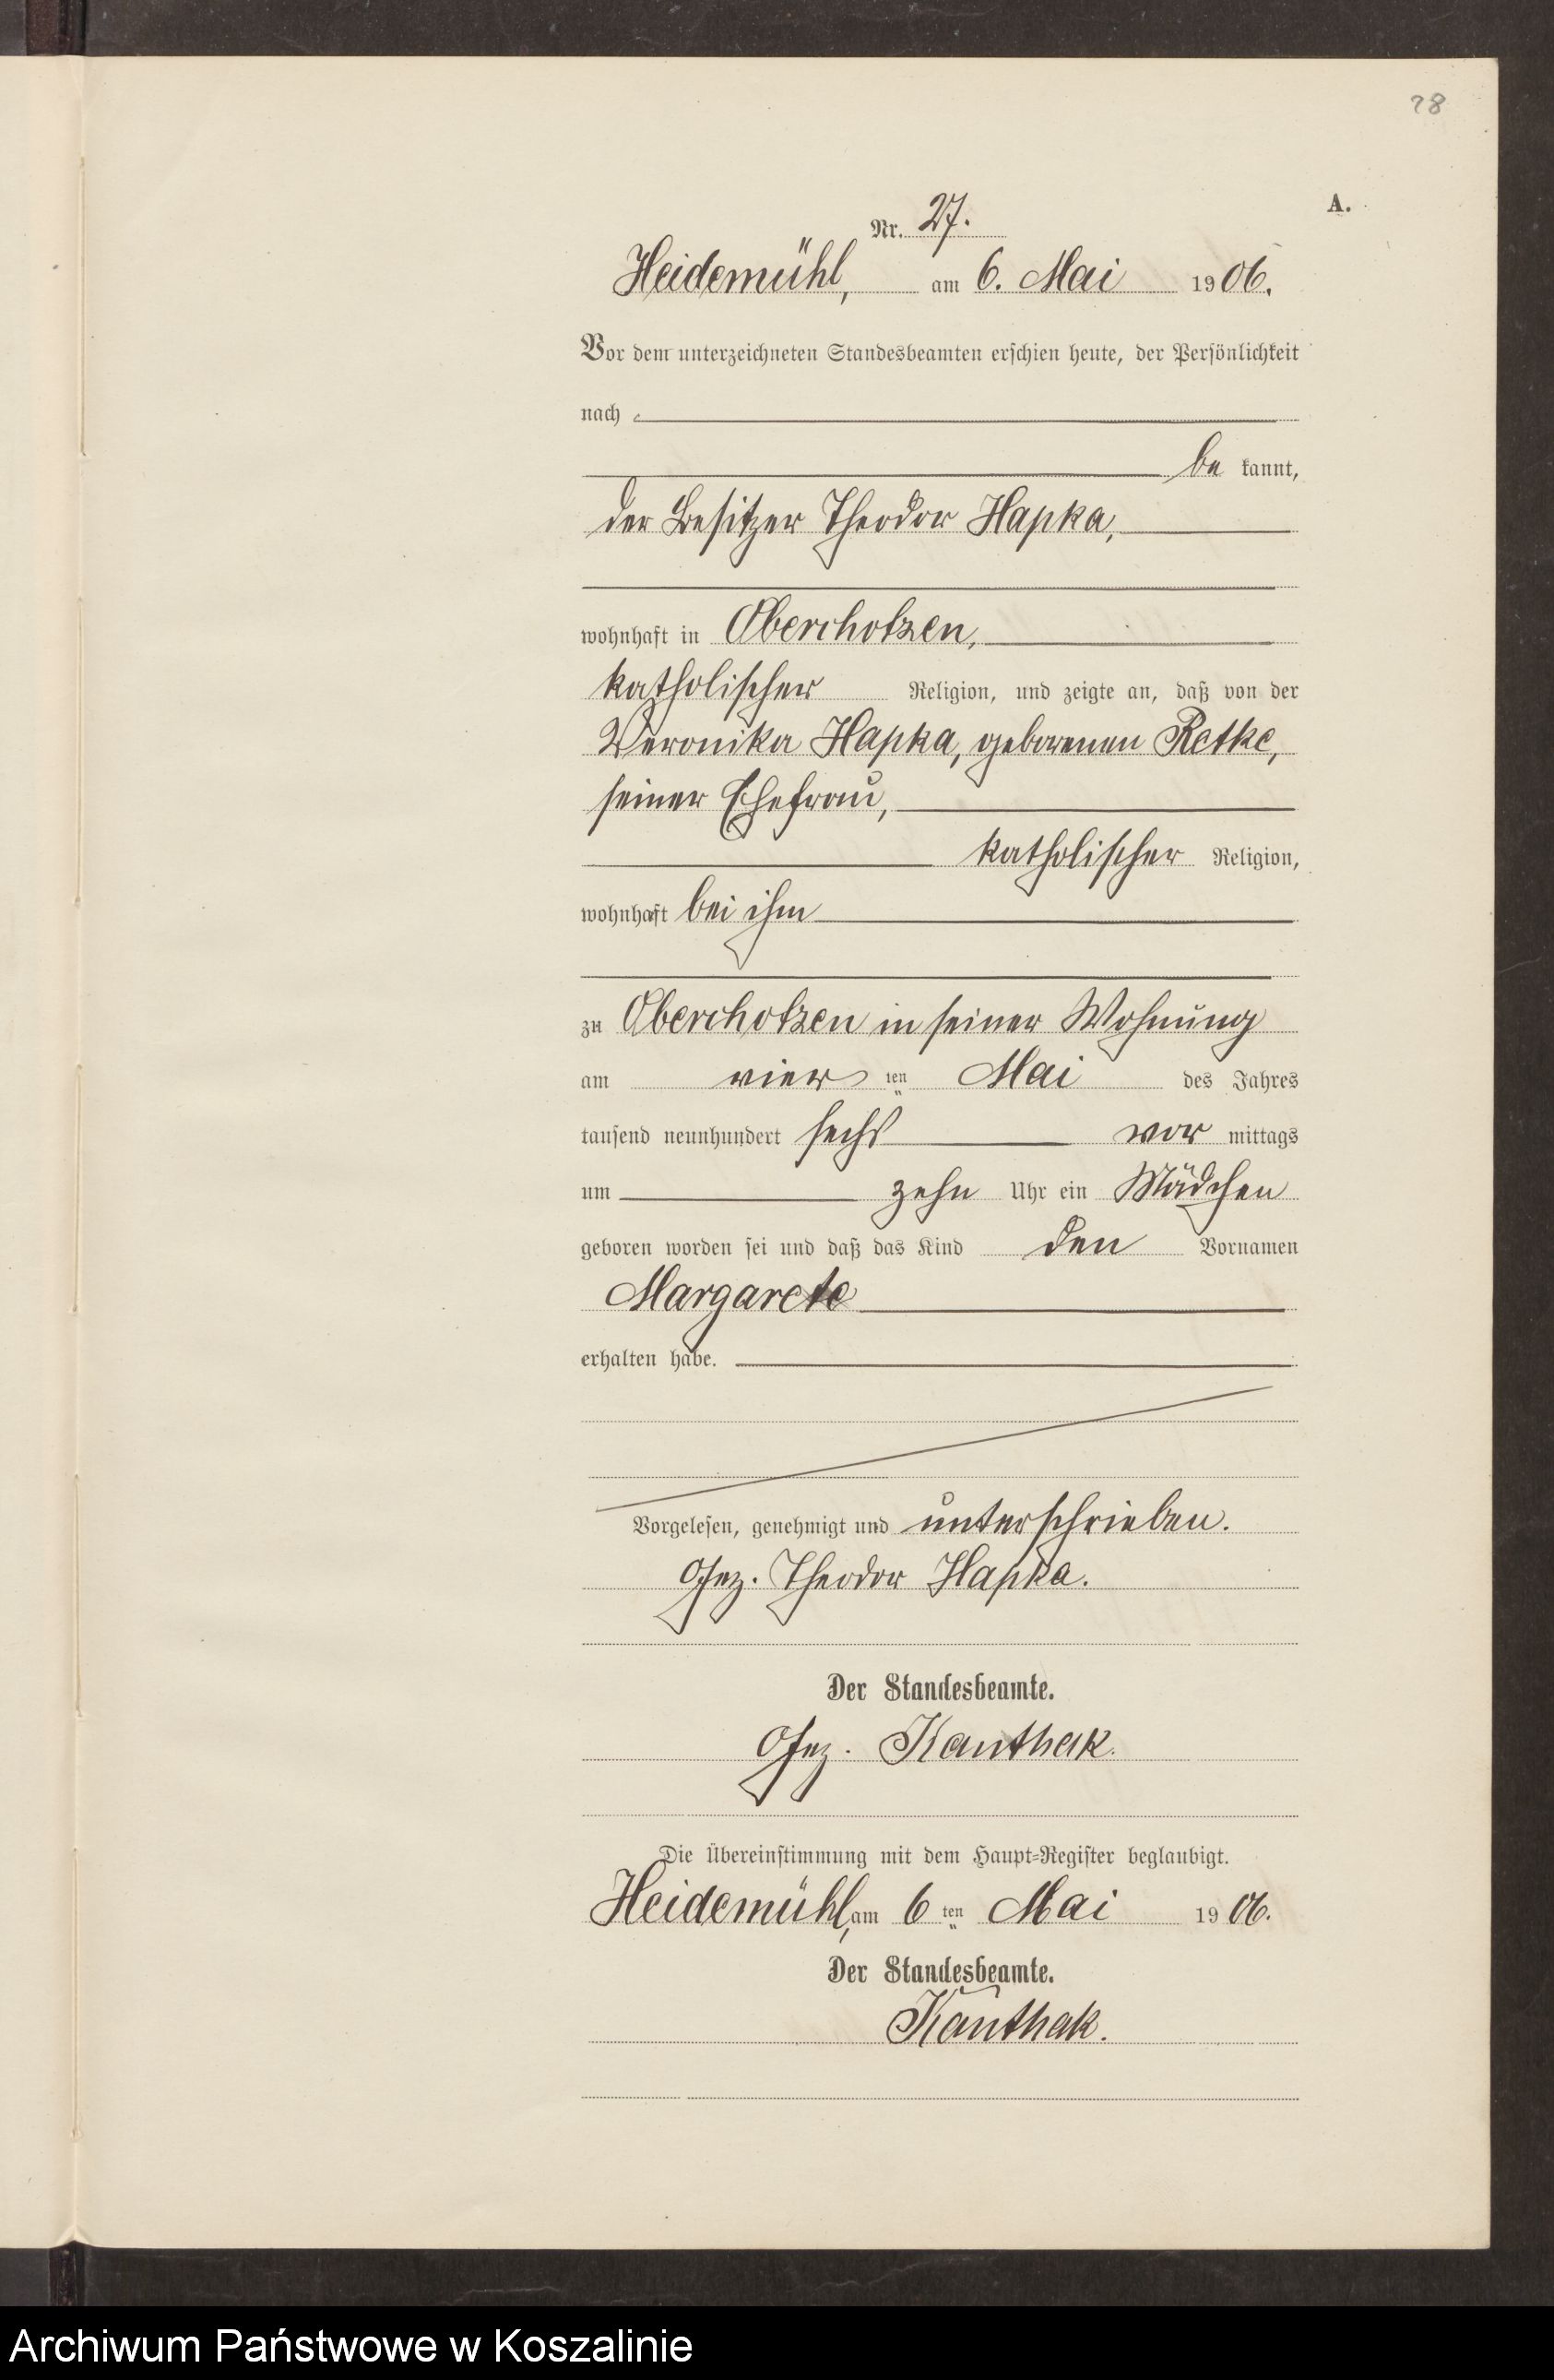 28
A.
Nr. 27.
Heidemühl, am 6. Mai 1906.
Vor dem unterzeichneten Standesbeamten erschien heute, der Persönlichkeit
nach
be kannt,
der Besitzer Theodor Hapka,
wohnhaft in Oberchotzen,
katholischer Religion, und zeigte an, daß von der
Veronika Hapka, geborenen Retke,
seiner Ehefrau,
katholischer Religion,
wohnhaft bei ihm
zu Oberchotzen in seiner Wohnung
am vier ten Mai des Jahres
tausend neunhundert sechs vor mittags
um zehn Uhr ein Mädchen
geboren worden sei und daß das Kind den Vornamen
Margarete
erhalten habe.
Vorgelesen, genehmigt und unterschrieben.
Gez. Theodor Hapka.
Der Standesbeamte.
Gez. Kanthak.
Die Übereinstimmung mit dem Haupt-Register beglaubigt.
Heidemühl, am 6 ten Mai 1906.
Der Standesbeamte.
Kanthak.
Archiwum Państwowe w Koszalinie